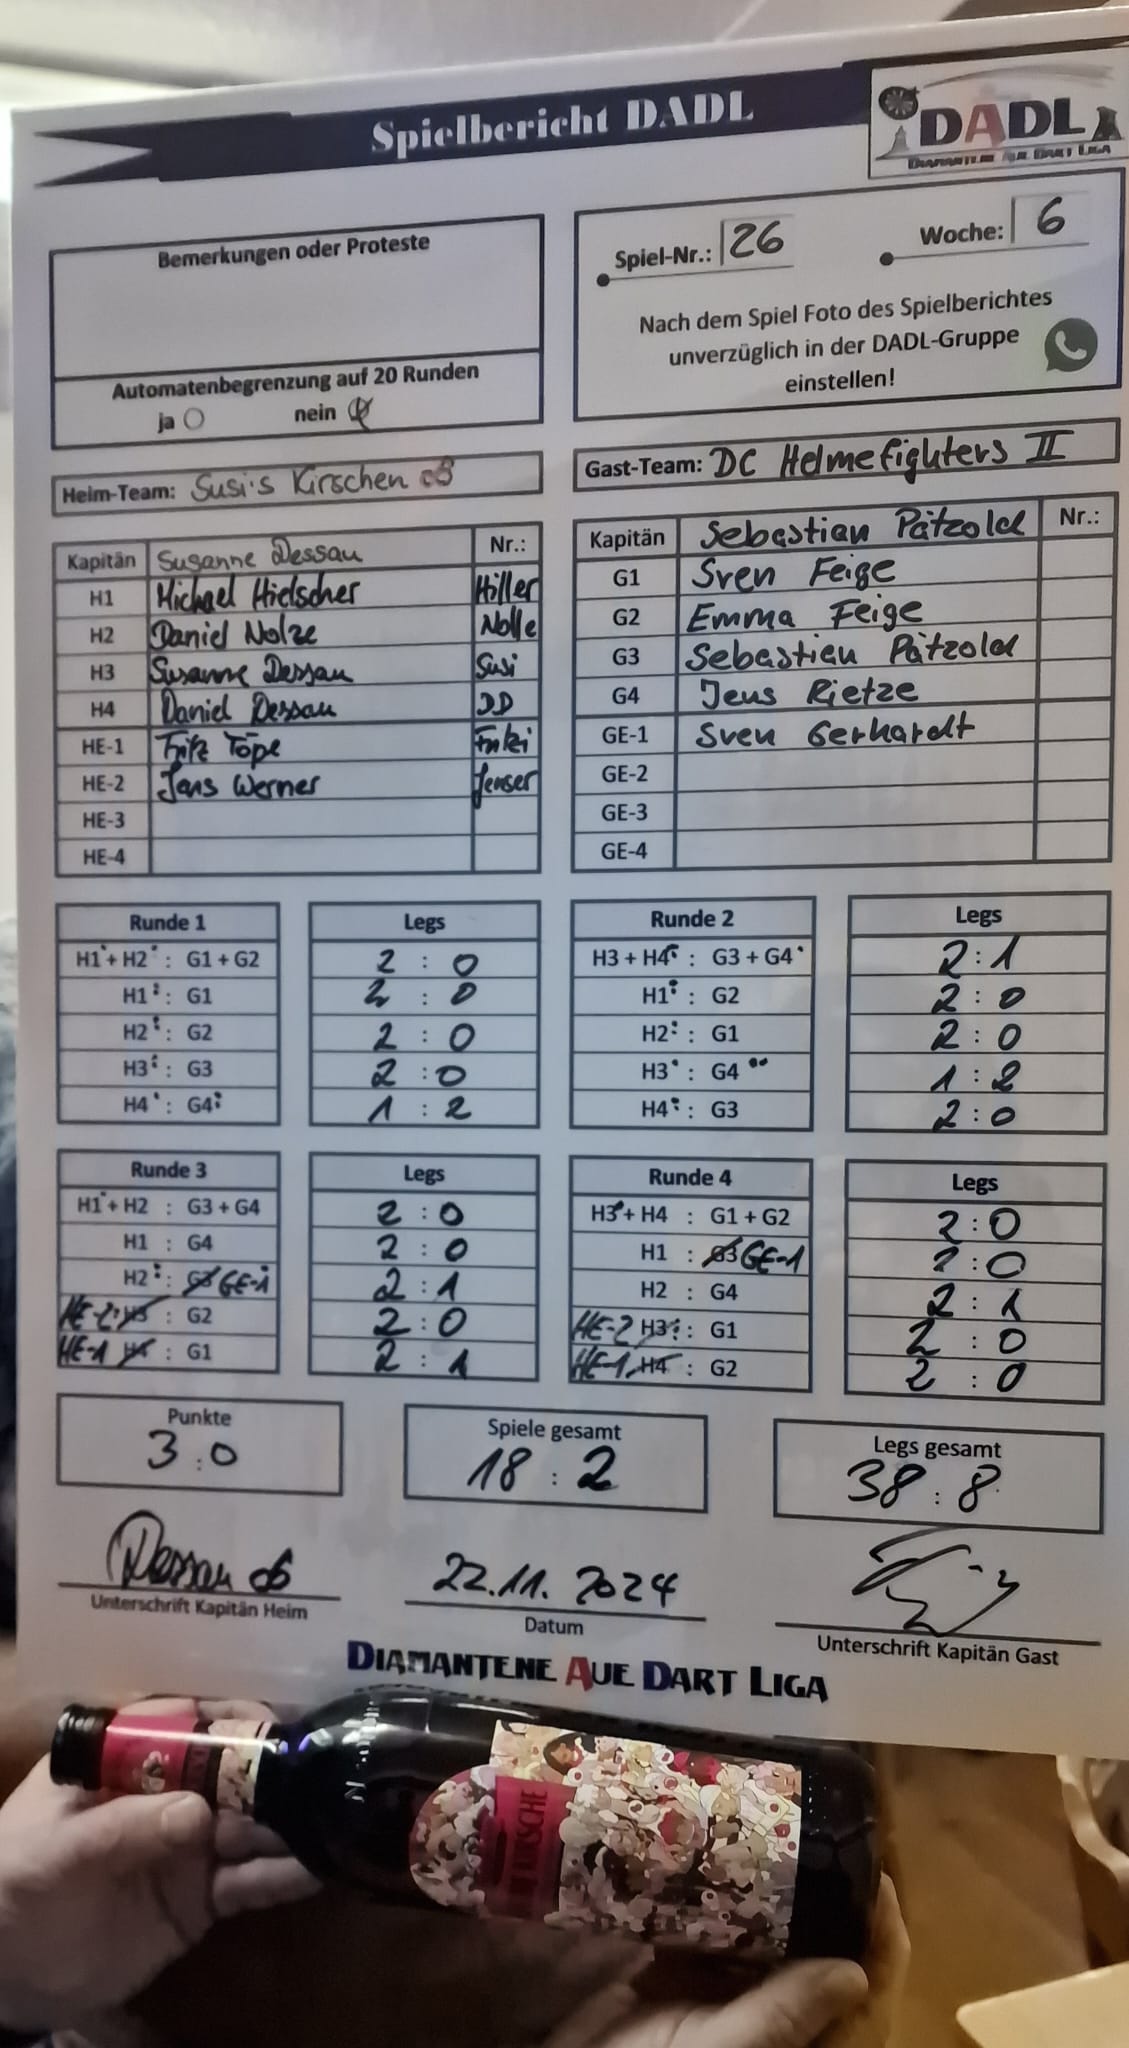 Spielbericht DADL
DADL
DIAMANTENE AUE DART LIGA
Bemerkungen oder Proteste
Spiel-Nr.: 26
Woche: 6
Nach dem Spiel Foto des Spielberichtes
unverzüglich in der DADL-Gruppe
einstellen!
Automatenbegrenzung auf 20 Runden
ja nein
Heim-Team: Susi's Kirschen
Gast-Team: DC Helmefighters II
Kapitän Susanne Dessau Nr.:
H1 Michael Hielscher Hiller
H2 Daniel Nolze Nolle
H3 Susanne Dessau Susi
H4 Daniel Dessau DD
HE-1 Fritz Töpe
HE-2 Jens Werner Jenser
HE-3
HE-4
Kapitän Sebastian Pätzold Nr.:
G1 Sven Feige
G2 Emma Feige
G3 Sebastian Pätzold
G4 Jens Rietze
GE-1 Sven Gerhardt
GE-2
GE-3
GE-4
Runde 1 Legs
H1 + H2 : G1 + G2 2 : 0
H1 : G1 2 : 0
H2 : G2 2 : 0
H3 : G3 2 : 0
H4 : G4 1 : 2
Runde 2 Legs
H3 + H4 : G3 + G4 2 : 1
H1 : G2 2 : 0
H2 : G1 2 : 0
H3 : G4 1 : 2
H4 : G3 2 : 0
Runde 3 Legs
H1 + H2 : G3 + G4 2 : 0
H1 : G4 2 : 0
H2 : G3 GE-1 2 : 1
HE-2 H3 : G2 2 : 0
HE-1 H4 : G1 2 : 1
Runde 4 Legs
H3 + H4 : G1 + G2 2 : 0
H1 : G3 GE-1 2 : 0
H2 : G4 2 : 1
HE-2 H3 : G1 2 : 0
HE-1 H4 : G2 2 : 0
Punkte
3 : 0
Spiele gesamt
18 : 2
Legs gesamt
38 : 8
Dessau
22.11.2024
Unterschrift Kapitän Heim
Datum
Unterschrift Kapitän Gast
DIAMANTENE AUE DART LIGA